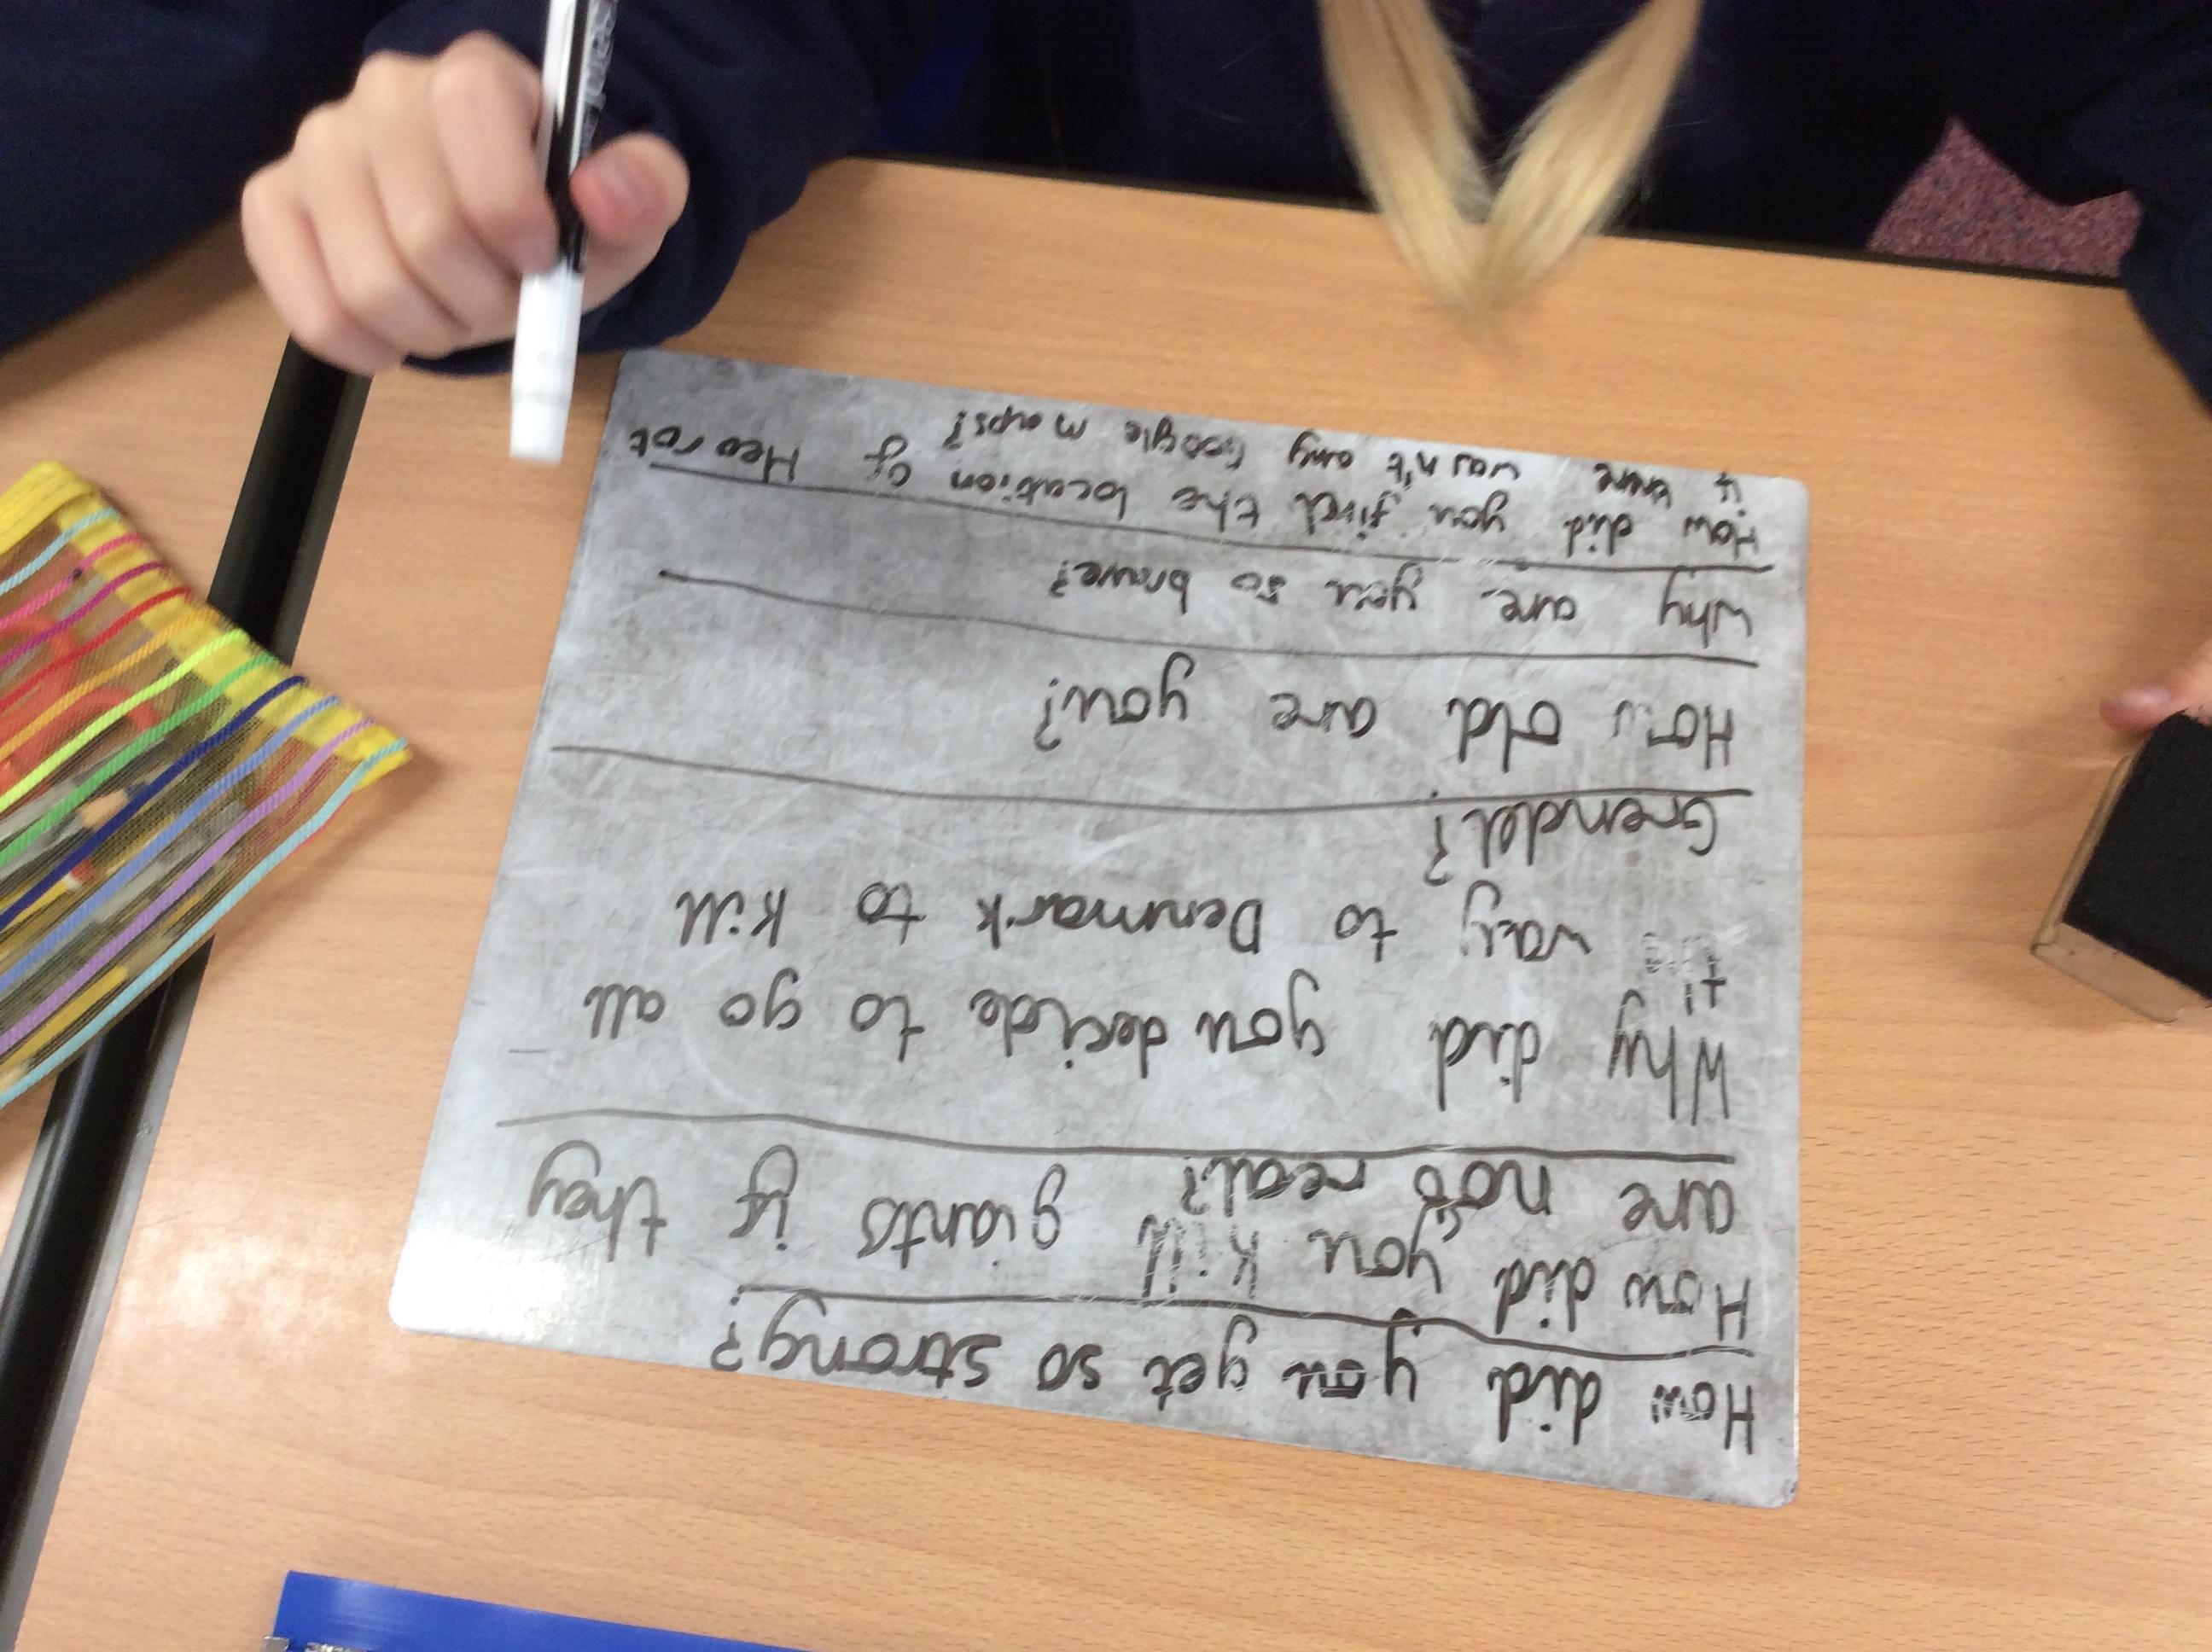 How did you get so strong?
How did you kill giants if they
are not real?
Why did you decide to go all
the way to Denmark to kill
Grendel?
How old are you?
Why are you so brave?
How did you find the location of Heorot
if there wasn't any Google maps?